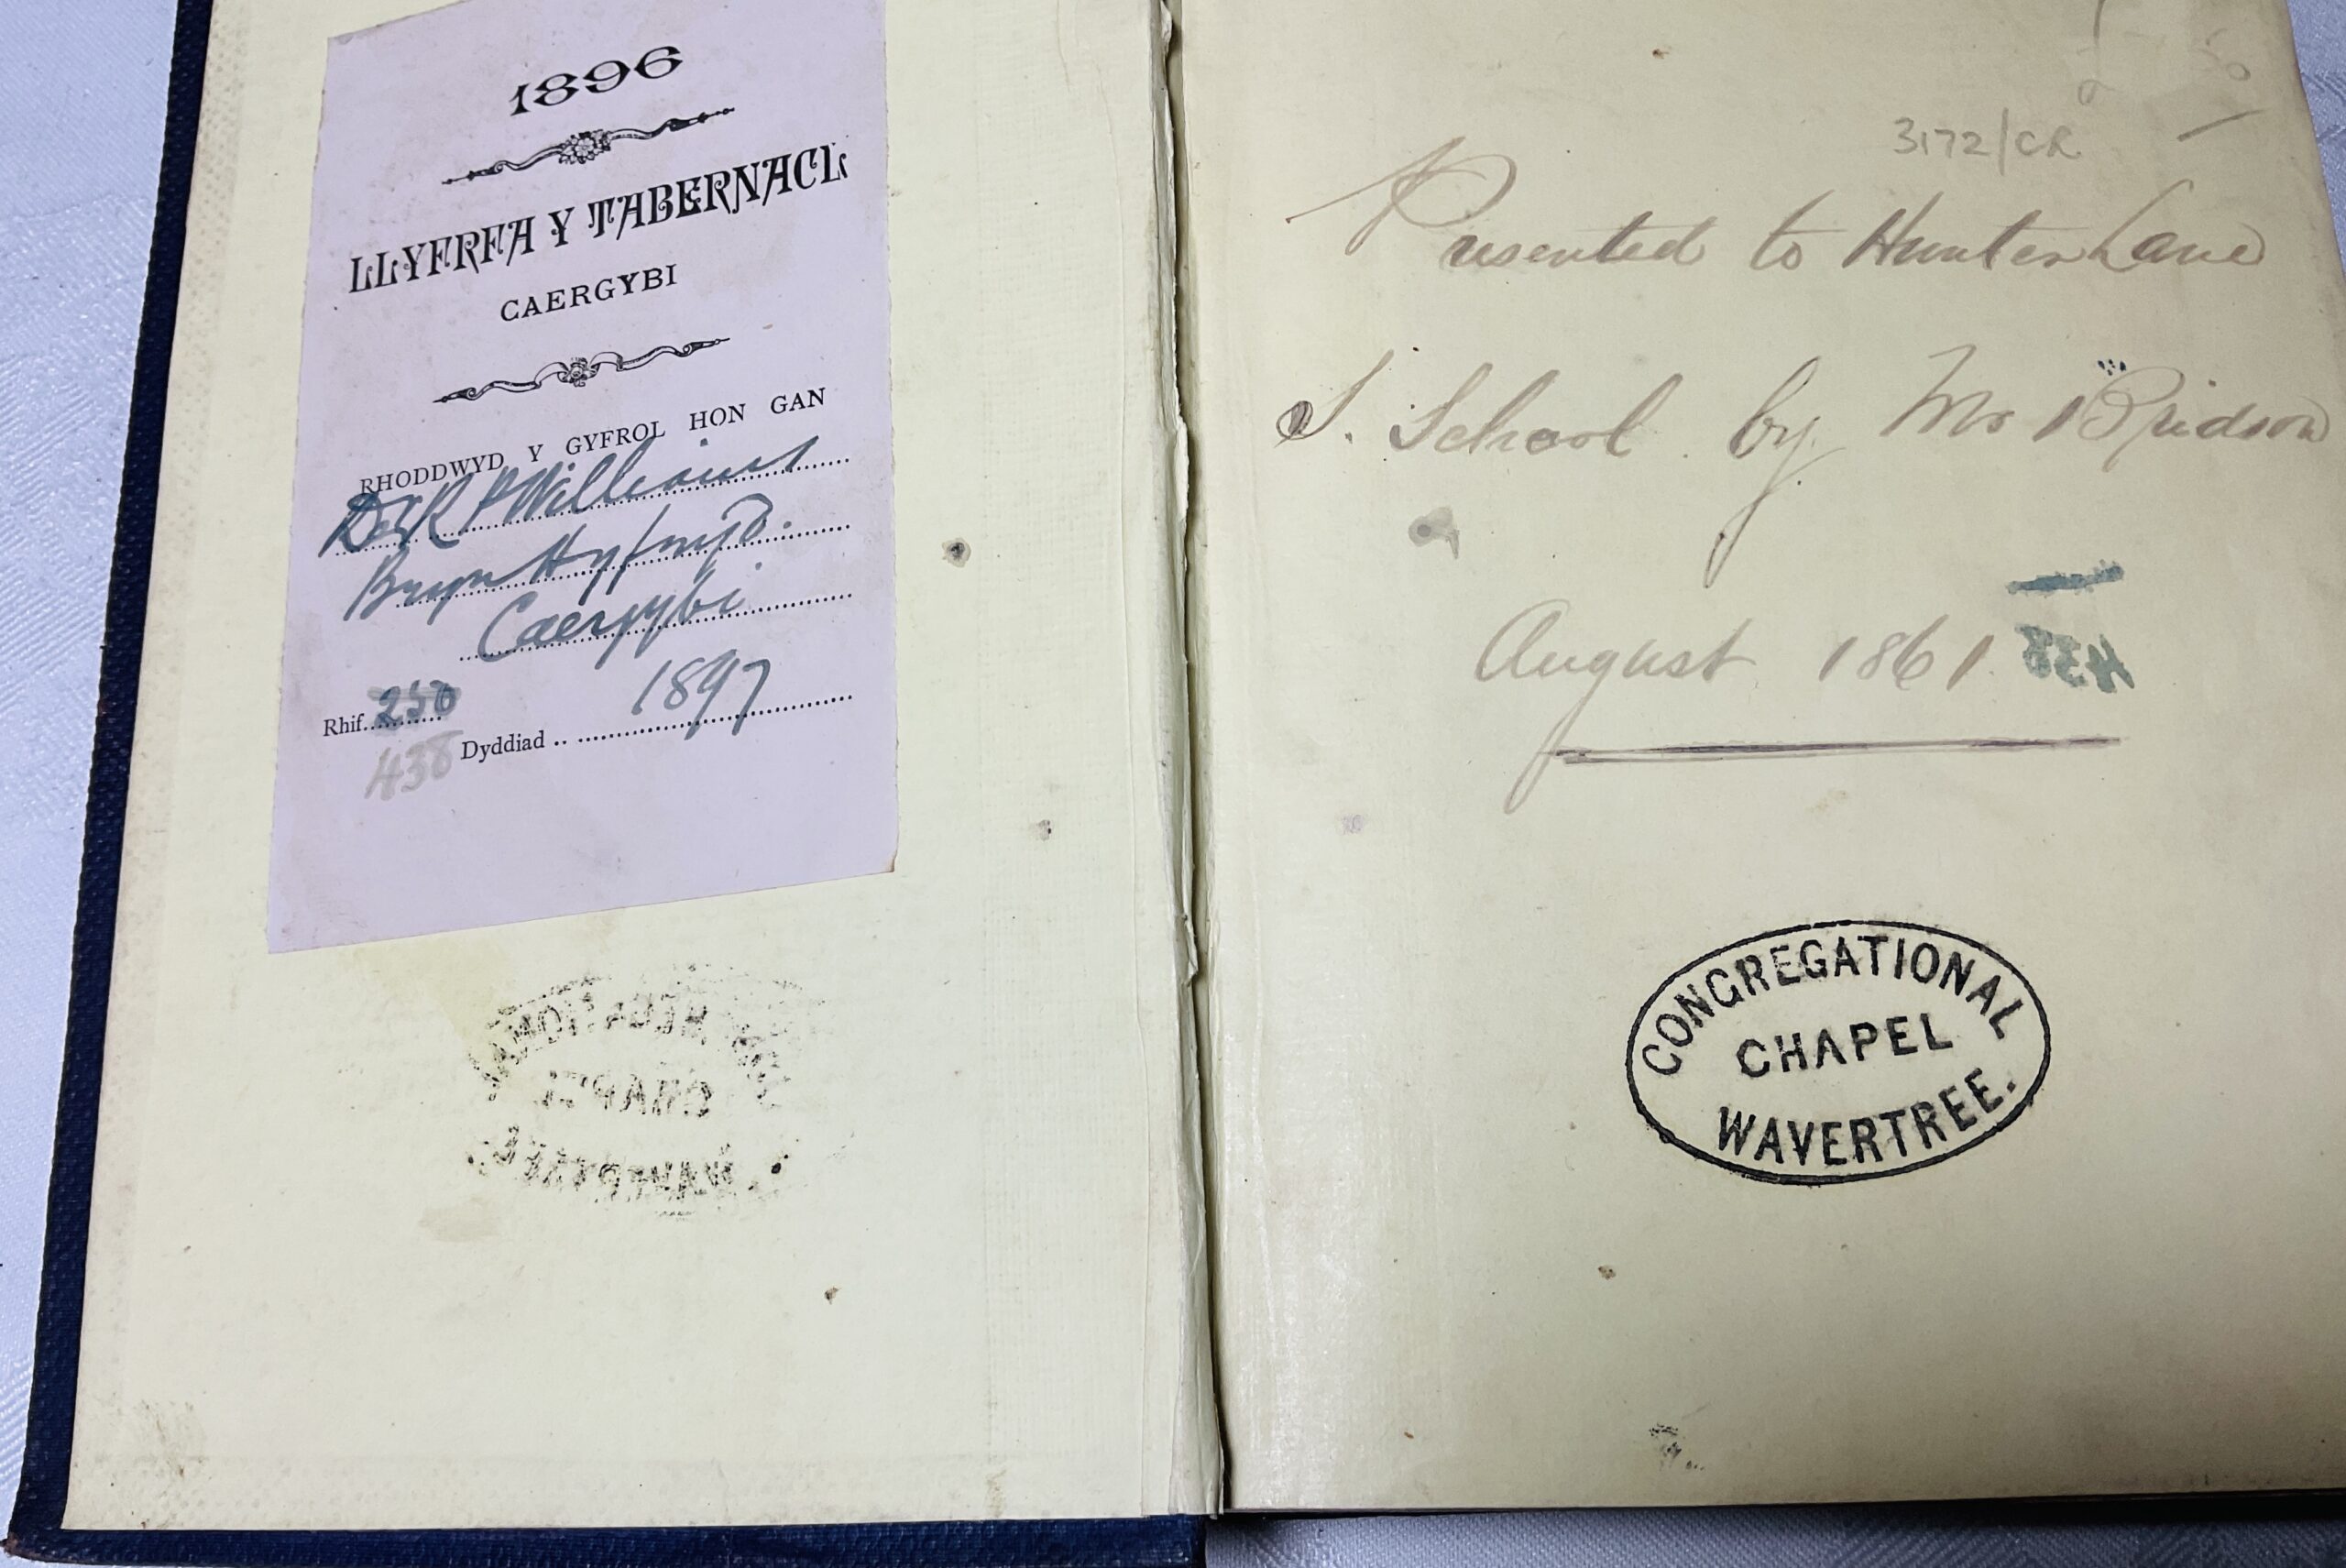 1896
LLYFRFA Y TABERNACL
CAERGYBI
RHODDWYD Y GYFROL HON GAN
R P Williams
Bryn Hyfryd.
Caergybi
Rhif 250
438
Dyddiad 1897
3172/CR
Presented to Hunter Lane
S. School by Mr Bridson
August 1861
CONGREGATIONAL
CHAPEL
WAVERTREE.